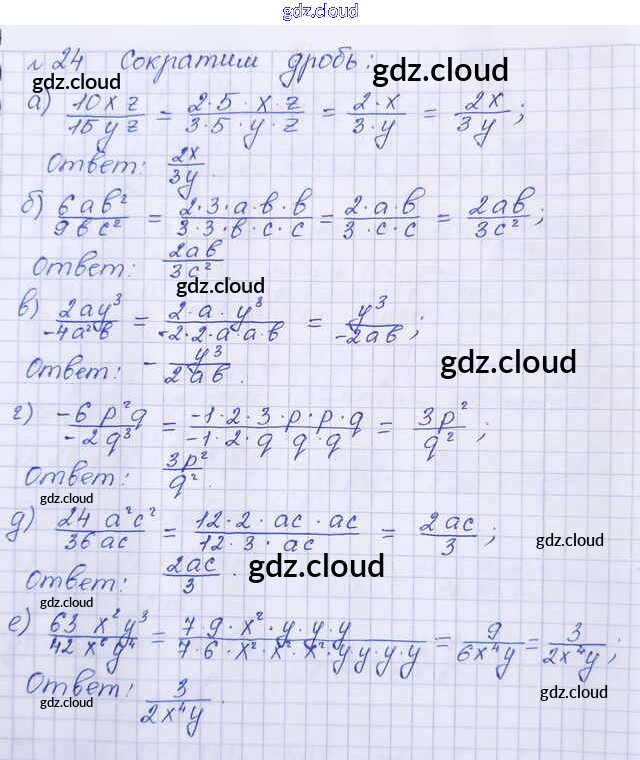 gdz.cloud
№ 24 Сократим дробь:
gdz.cloud
а) 10xz/15yz = 2·5·x·z/3·5·y·z = 2·x/3·y = 2x/3y;
Ответ: 2x/3y.
gdz.cloud
б) 6ab²/9bc² = 2·3·a·b·b/3·3·b·c·c = 2·a·b/3·c·c = 2ab/3c²;
Ответ: 2ab/3c²
gdz.cloud
в) 2ay³/-4a²b = 2·a·y³/-2·2·a·a·b = y³/-2ab;
Ответ: - y³/2ab.
gdz.cloud
г) -6p²q/-2q³ = -1·2·3·p·p·q/-1·2·q q·q = 3p²/q²;
Ответ: 3p²/q².
gdz.cloud
д) 24a²c²/36ac = 12·2·ac·ac/12·3·ac = 2ac/3;
gdz.cloud
Ответ: 2ac/3.
gdz.cloud
gdz.cloud
е) 63x²y³/42x⁶y⁴ = 7·9·x²·y·y·y/7·6·x²·x²·x²·y·y·y·y = 9/6x⁴y = 3/2x⁴y;
Ответ: 3/2x⁴y.
gdz.cloud
gdz.cloud
gdz.cloud